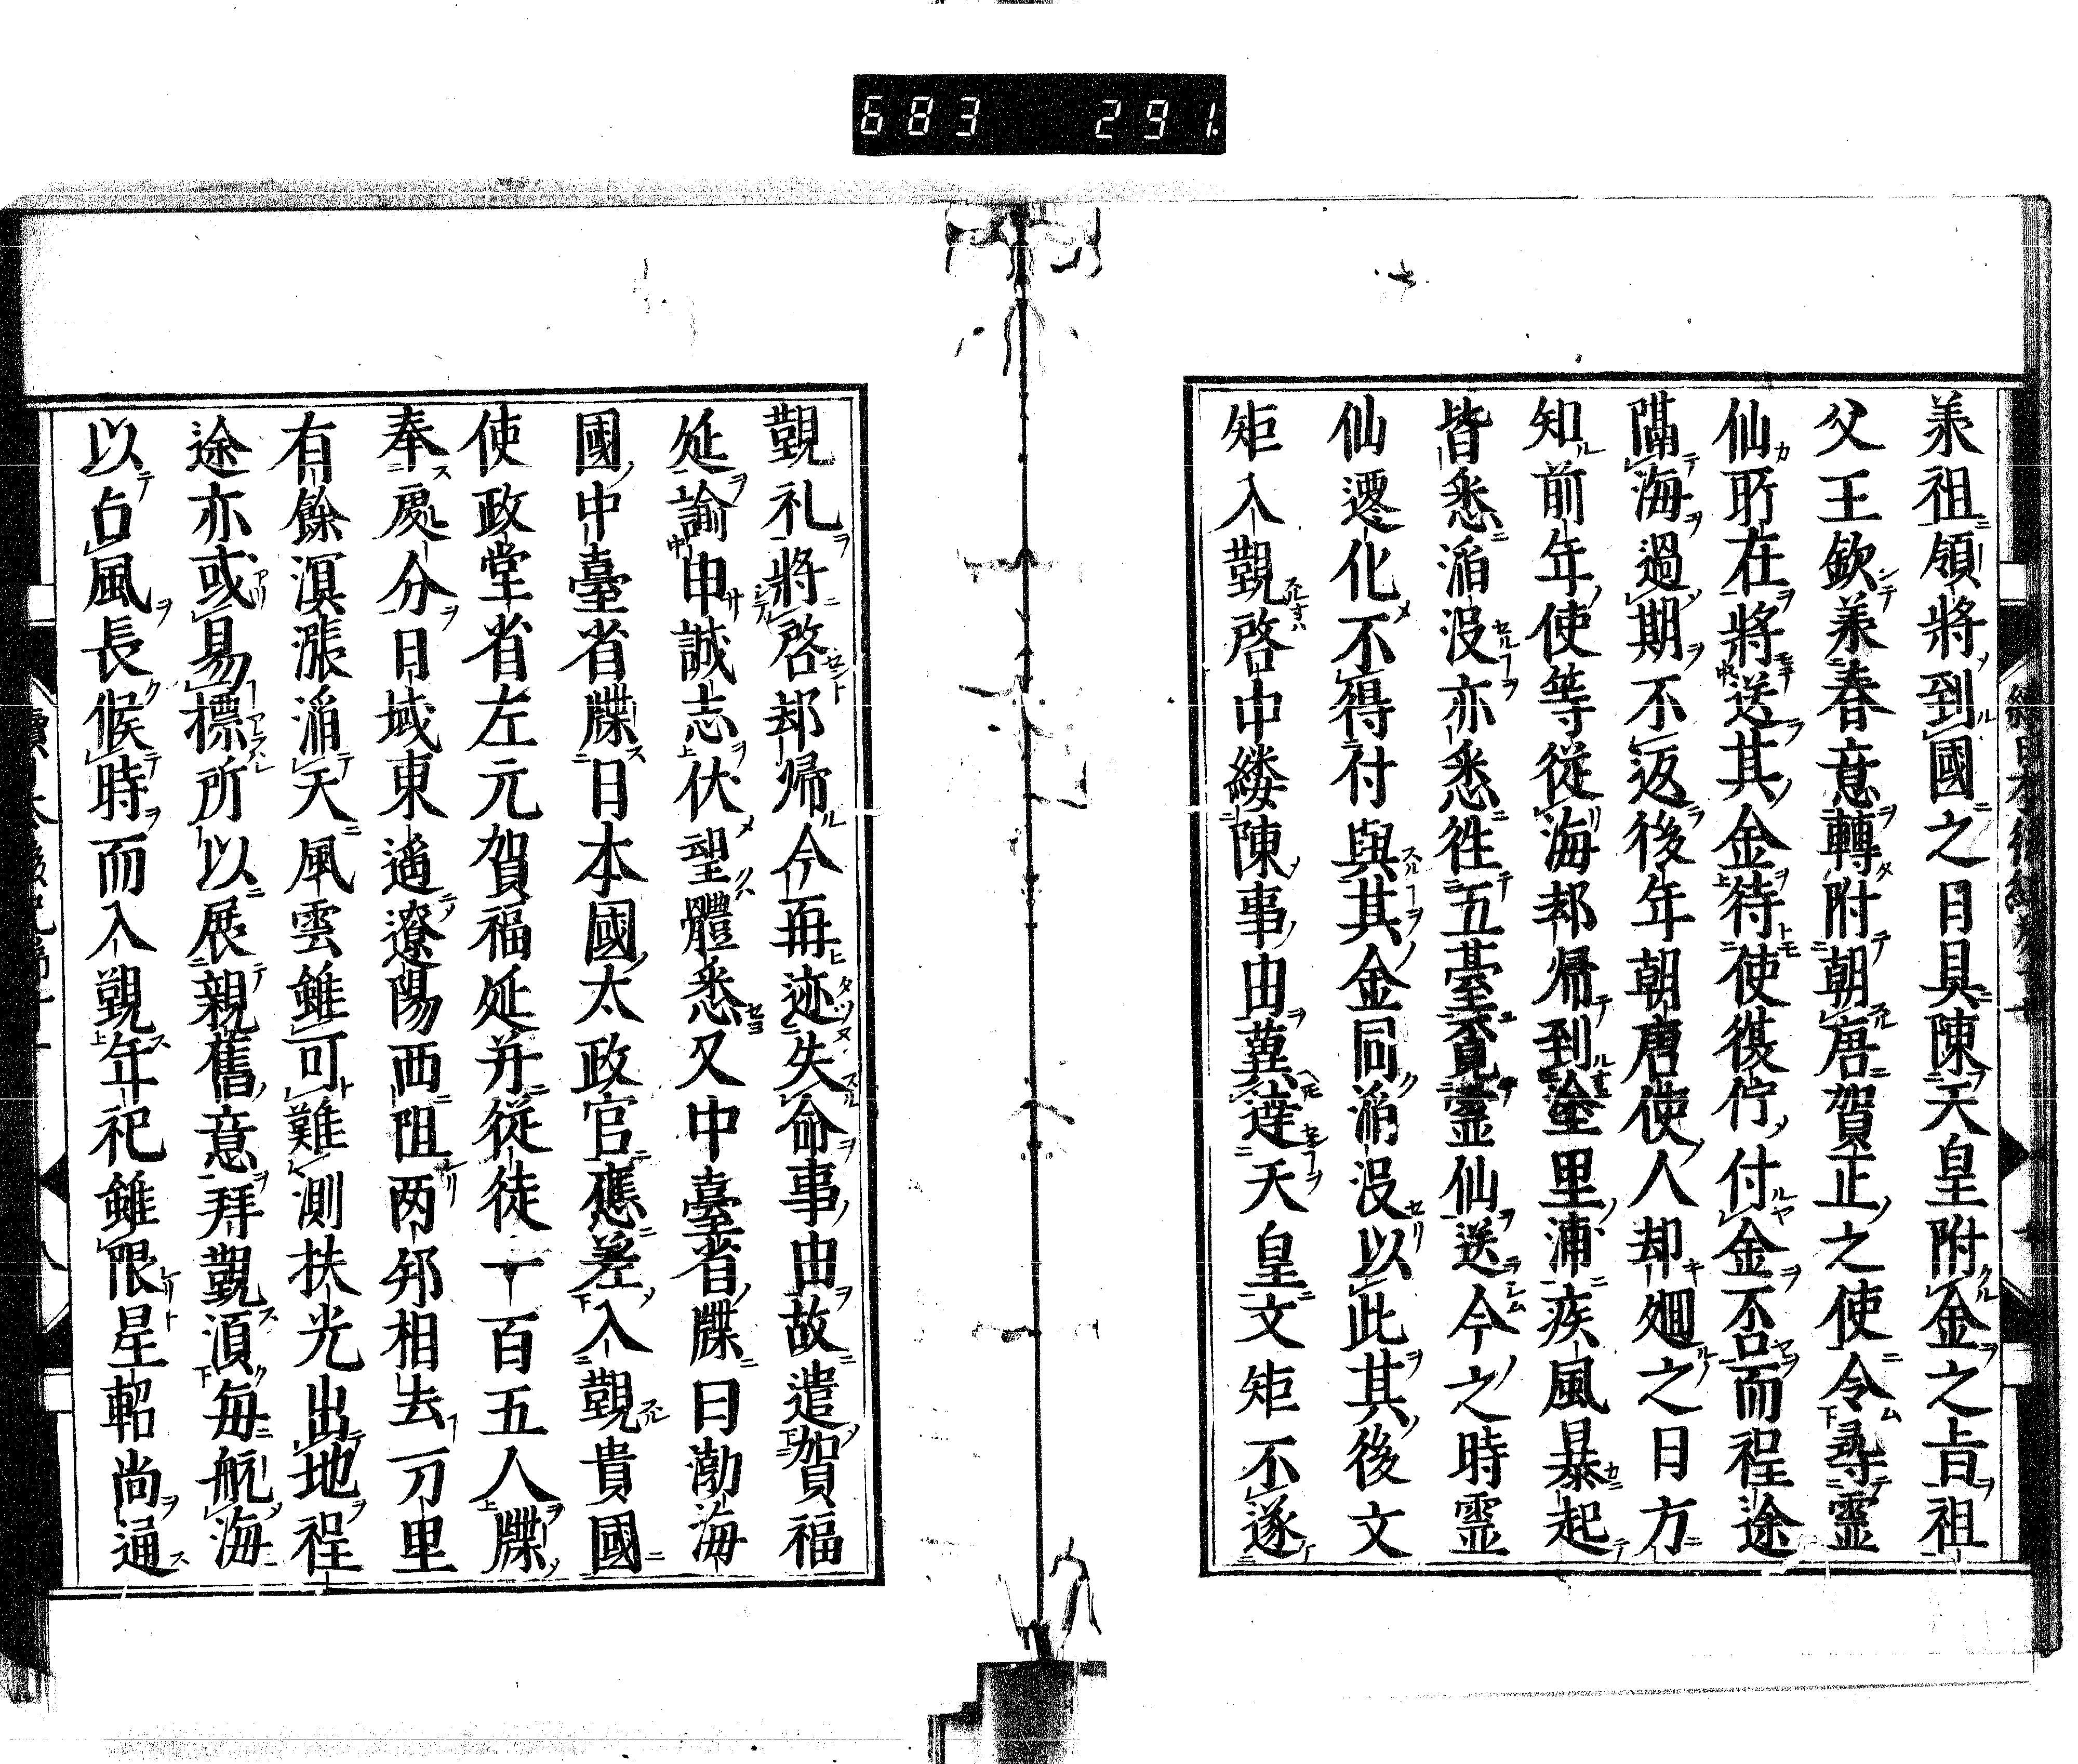 683 291
義祖領將到國之日具陳天皇附金之旨祖
父王欽義春意轉附朝唐賀正之使令尋靈
仙所在將送其金待使復佇付金否而程途
隔海過期不返後年朝唐使人却廻之日方
知前年使等從海却帰到塗里浦疾風暴起
皆悉滔没亦悉徃五臺覔霊仙送今之時霊
仙遷化不得付與其金同滔没以此其後文
矩入覲啓中縷陳事由冀達天皇文矩不遂
覲礼將啓却帰今再迹失命事由故遣賀福
延諭申誠志伏望體悉又中臺省牒曰渤海
國中臺省牒日本國太政官應差入覲貴國
使政堂省左元賀福延并從徒一百五人牒
奉處分日域東遥遼陽西阻两邦相去一万里
有餘溟漲滔天風雲雖可難測扶光出地程
途亦或易標所以展親舊意拜覲湏毎航海
以占風長候時而入覲年祀雖限星軺尚通